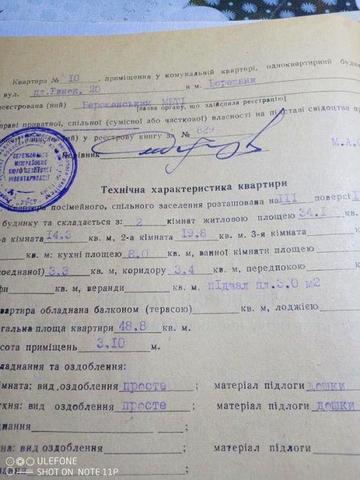 Квартира № 10, приміщення у комунальній квартирі, одноквартирний буди
вул. пл.Ринок, 20 в м. Бережани
реєстрована (ний) Бережанським МБТІ
(назва органу, що здійснила реєстрацію)
праві приватної, спільної (сумісної або часткової) власності на підставі свідоцтва пр
у реєстрову книгу за № 629
Керівник М.А.
Технічна характеристика квартири
посімейного, спільного заселення розташована на III поверсі
будинку та складається з: 2 кімнат житловою площею 34.1
а кімната 14.3 кв. м, 2-а кімната 19.8 кв. м. 3-я кімната
кв. м: кухні площею 8.0 кв. м, ванної кімнати площею
оєднаної) 3.3 кв. м, коридору 3.4 кв. м, передпокою
фи кв. м, веранди кв. м, підвал пл.5.0 м2
квартира обладнана балконом (терасою) кв. м, лоджією
гальна площа квартири 48.8 кв. м.
сота приміщень 3.10 м.
ладнання та оздоблення:
імната: вид оздоблення просте ; матеріал підлоги дошки
ухня: вид оздоблення просте ; матеріал підлоги дошки
днання
на: вид оздоблення ; матеріал підлоги
днання
ULEFONE
SHOT ON NOTE 11P